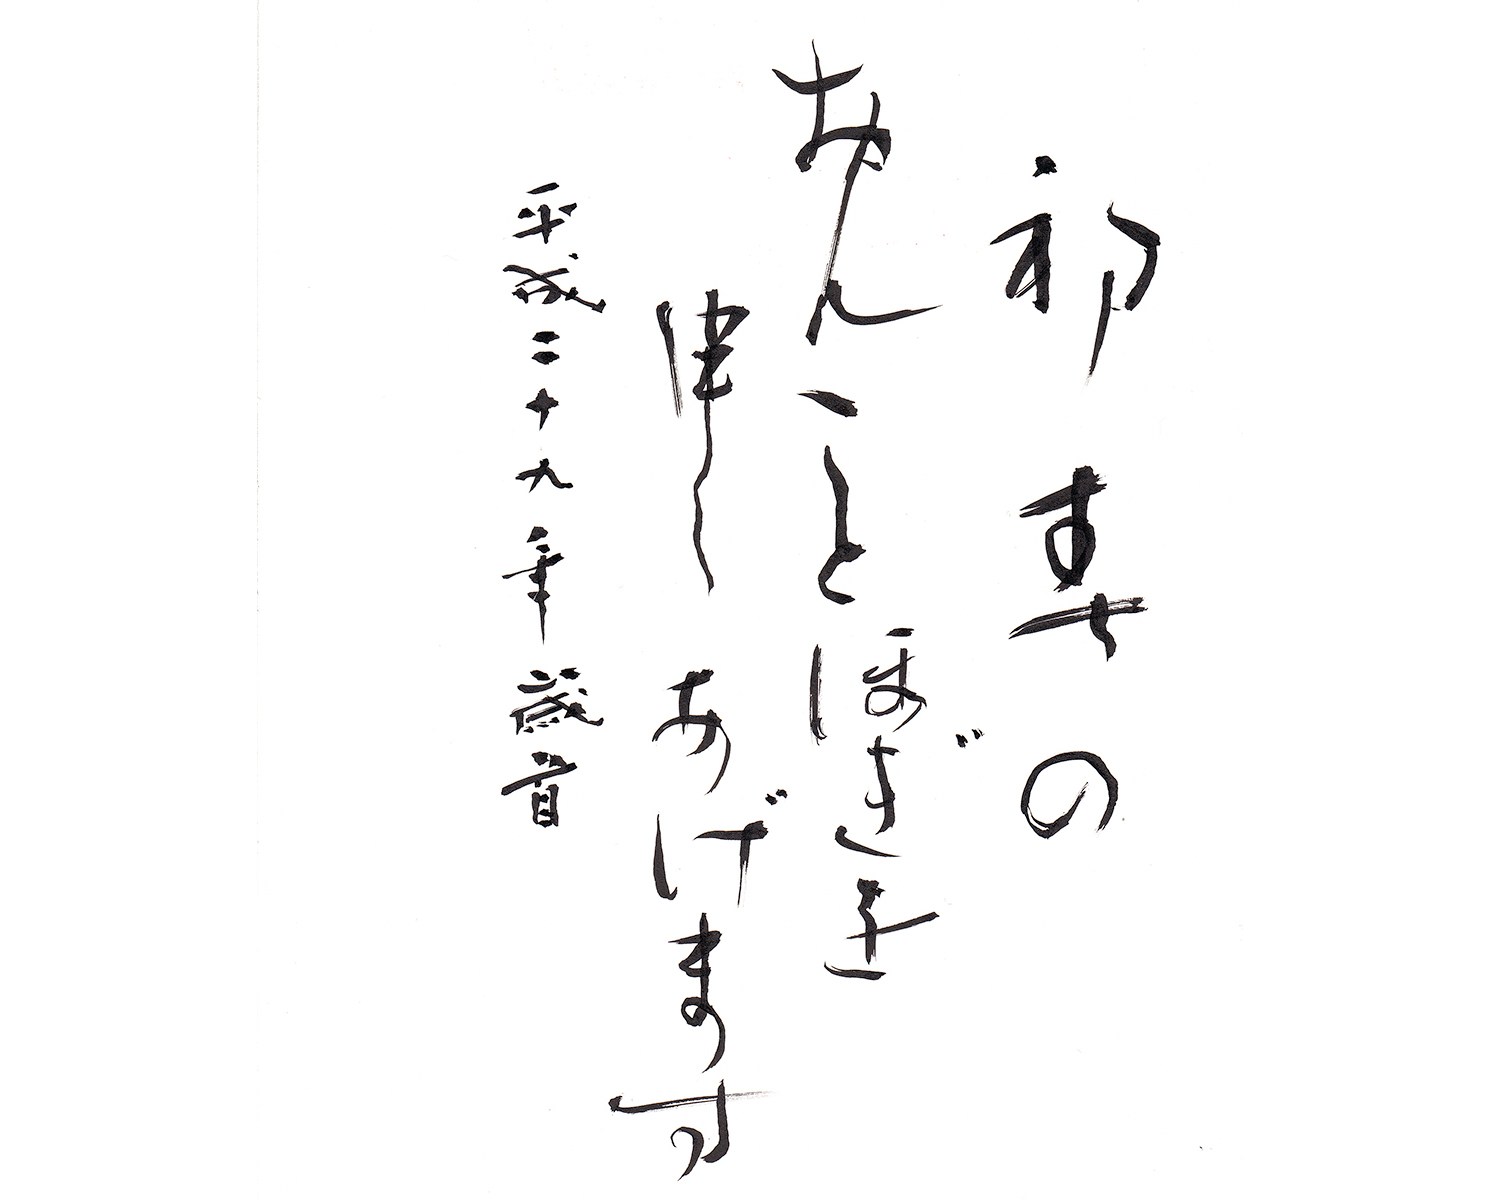 初春の
おんことほぎを
申しあげます
平成二十九年歳首